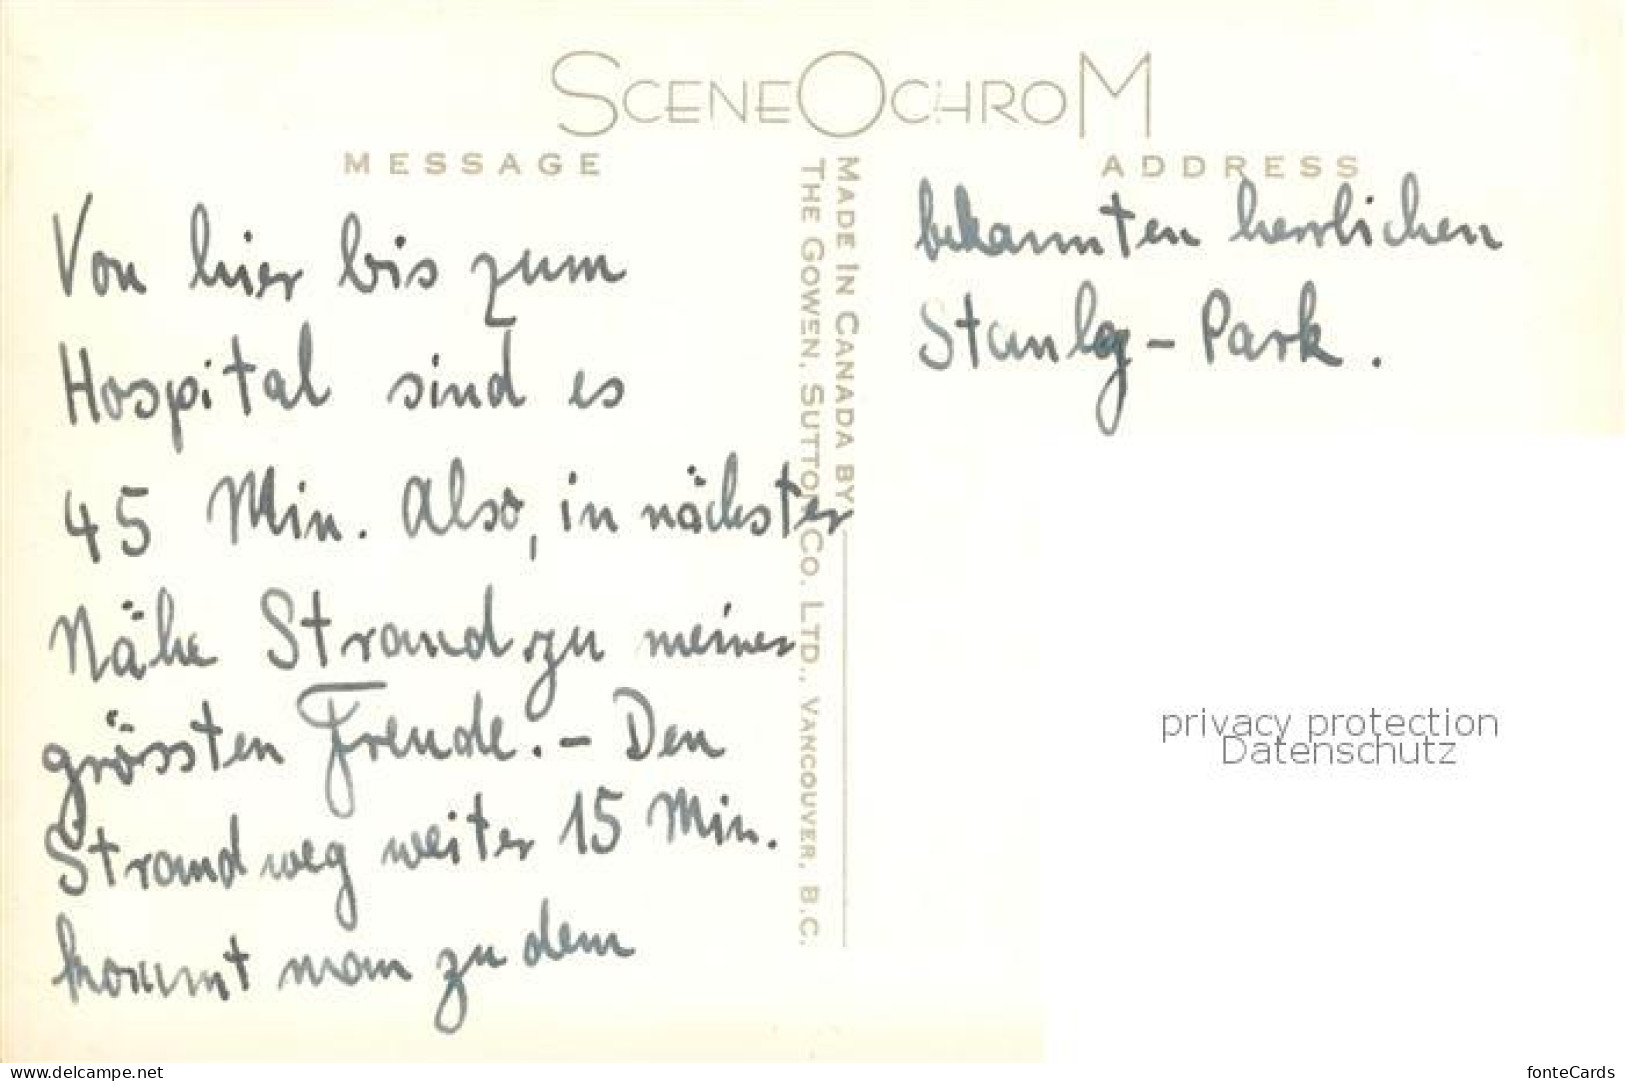 SCENEOCHROM
MESSAGE
Von hier bis zum
Hospital sind es
45 Min. Also, in nächster
Nähe Strand zu meiner
grössten Freude. – Den
Strandweg weiter 15 Min.
kommt man zu dem
MADE IN CANADA BY
THE GOWEN, SUTTON CO. LTD., VANCOUVER, B.C.
ADDRESS
bekannten herrlichen
Stanley-Park.
privacy protection
Datenschutz
www.delcampe.net
fonteCards